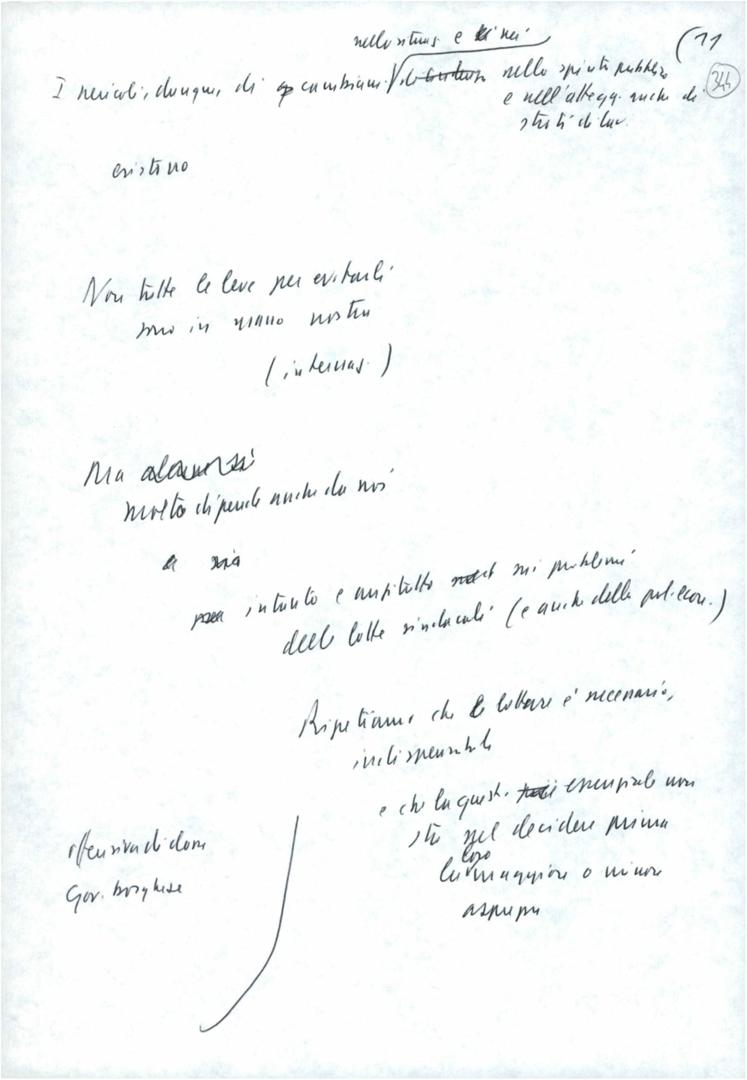 (11
344
nello stesso e nei
I pericoli, dunque, di cambiam. nello spirito pubblico
e nell'attegg. anche di
strati di lav.
esistono
Non tutte le leve per evitarli
sono in mano nostra
(internaz.)
Ma
molto dipende anche da noi
e sia
intanto e anzitutto sui problemi
delle lotte sindacali (e anche della pol. econ.)
Ripetiamo che lottare è necessario,
indispensabile
e che la quest. essenziale non
sta nel decidere prima
la loro maggiore o minore
asprezza
offensiva di dom
Gov. borghese